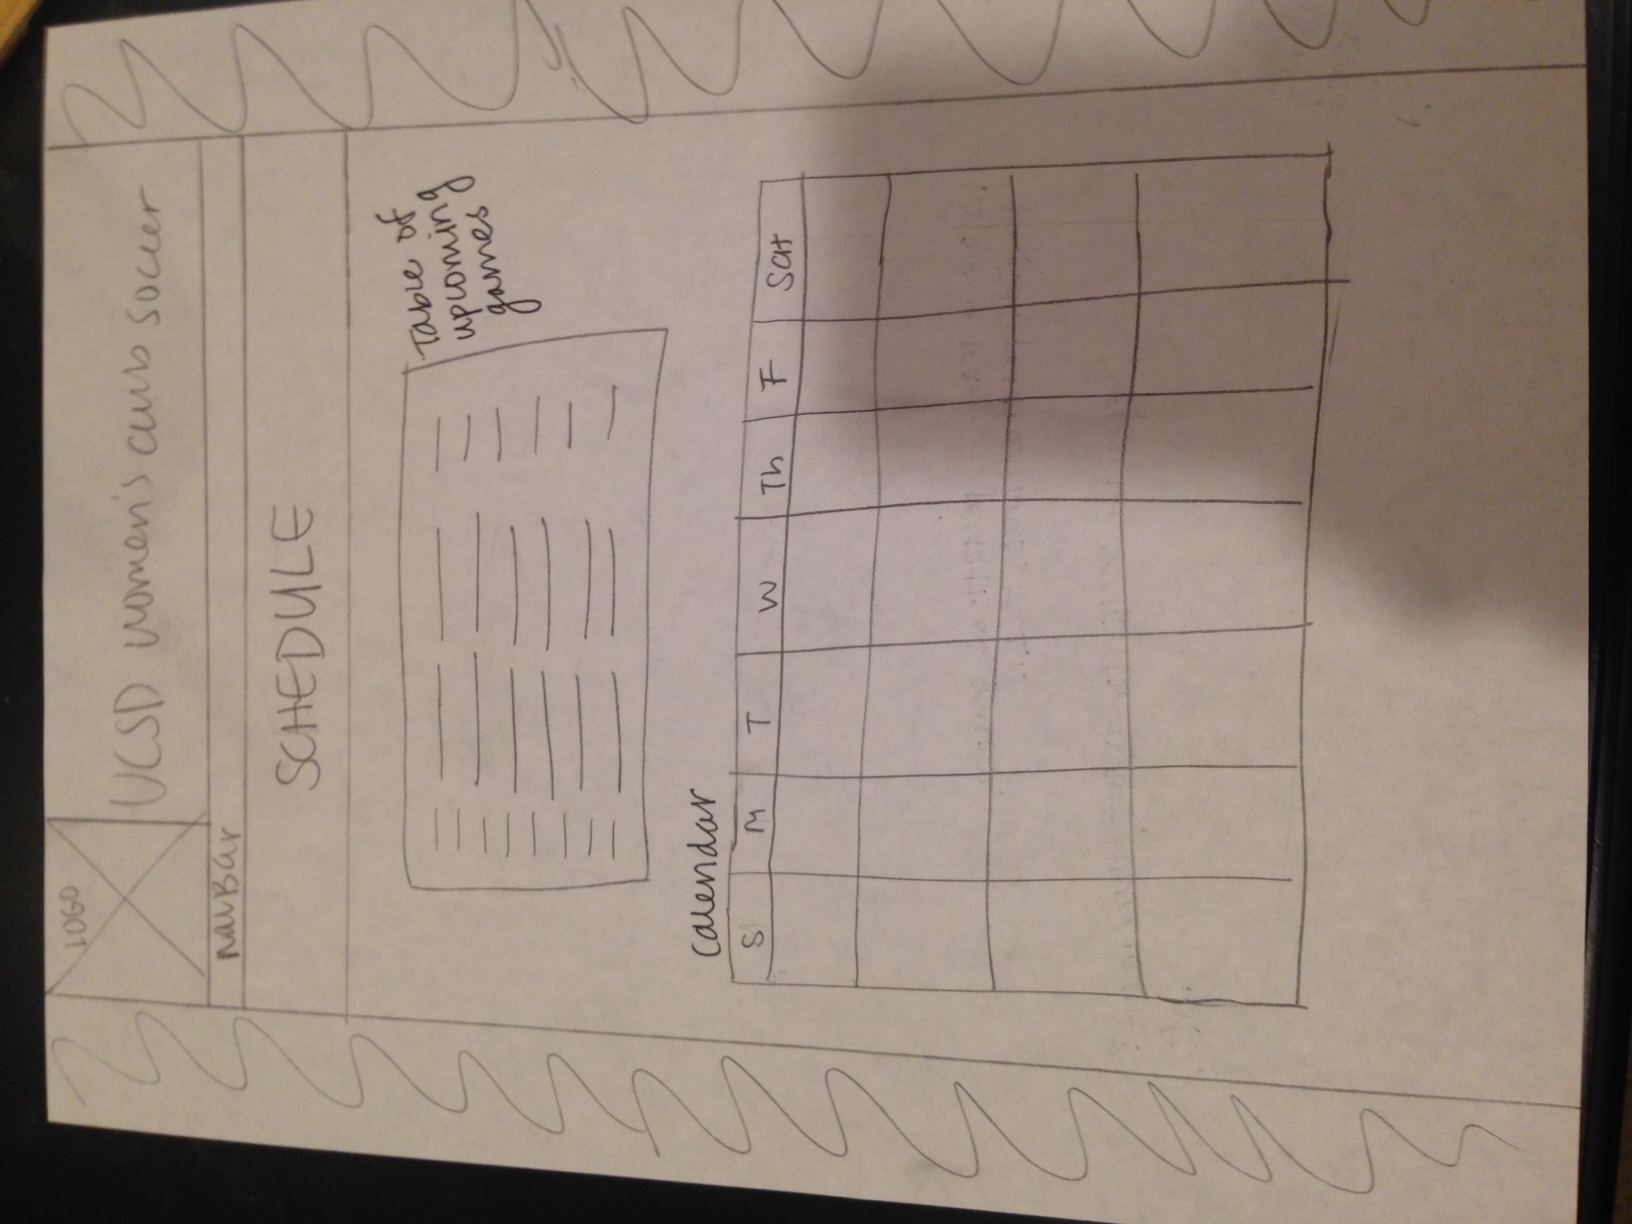 LOGO
UCSD women's club soccer
NavBar
SCHEDULE
Table of
upcoming
games
calendar
S M T W Th F Sat